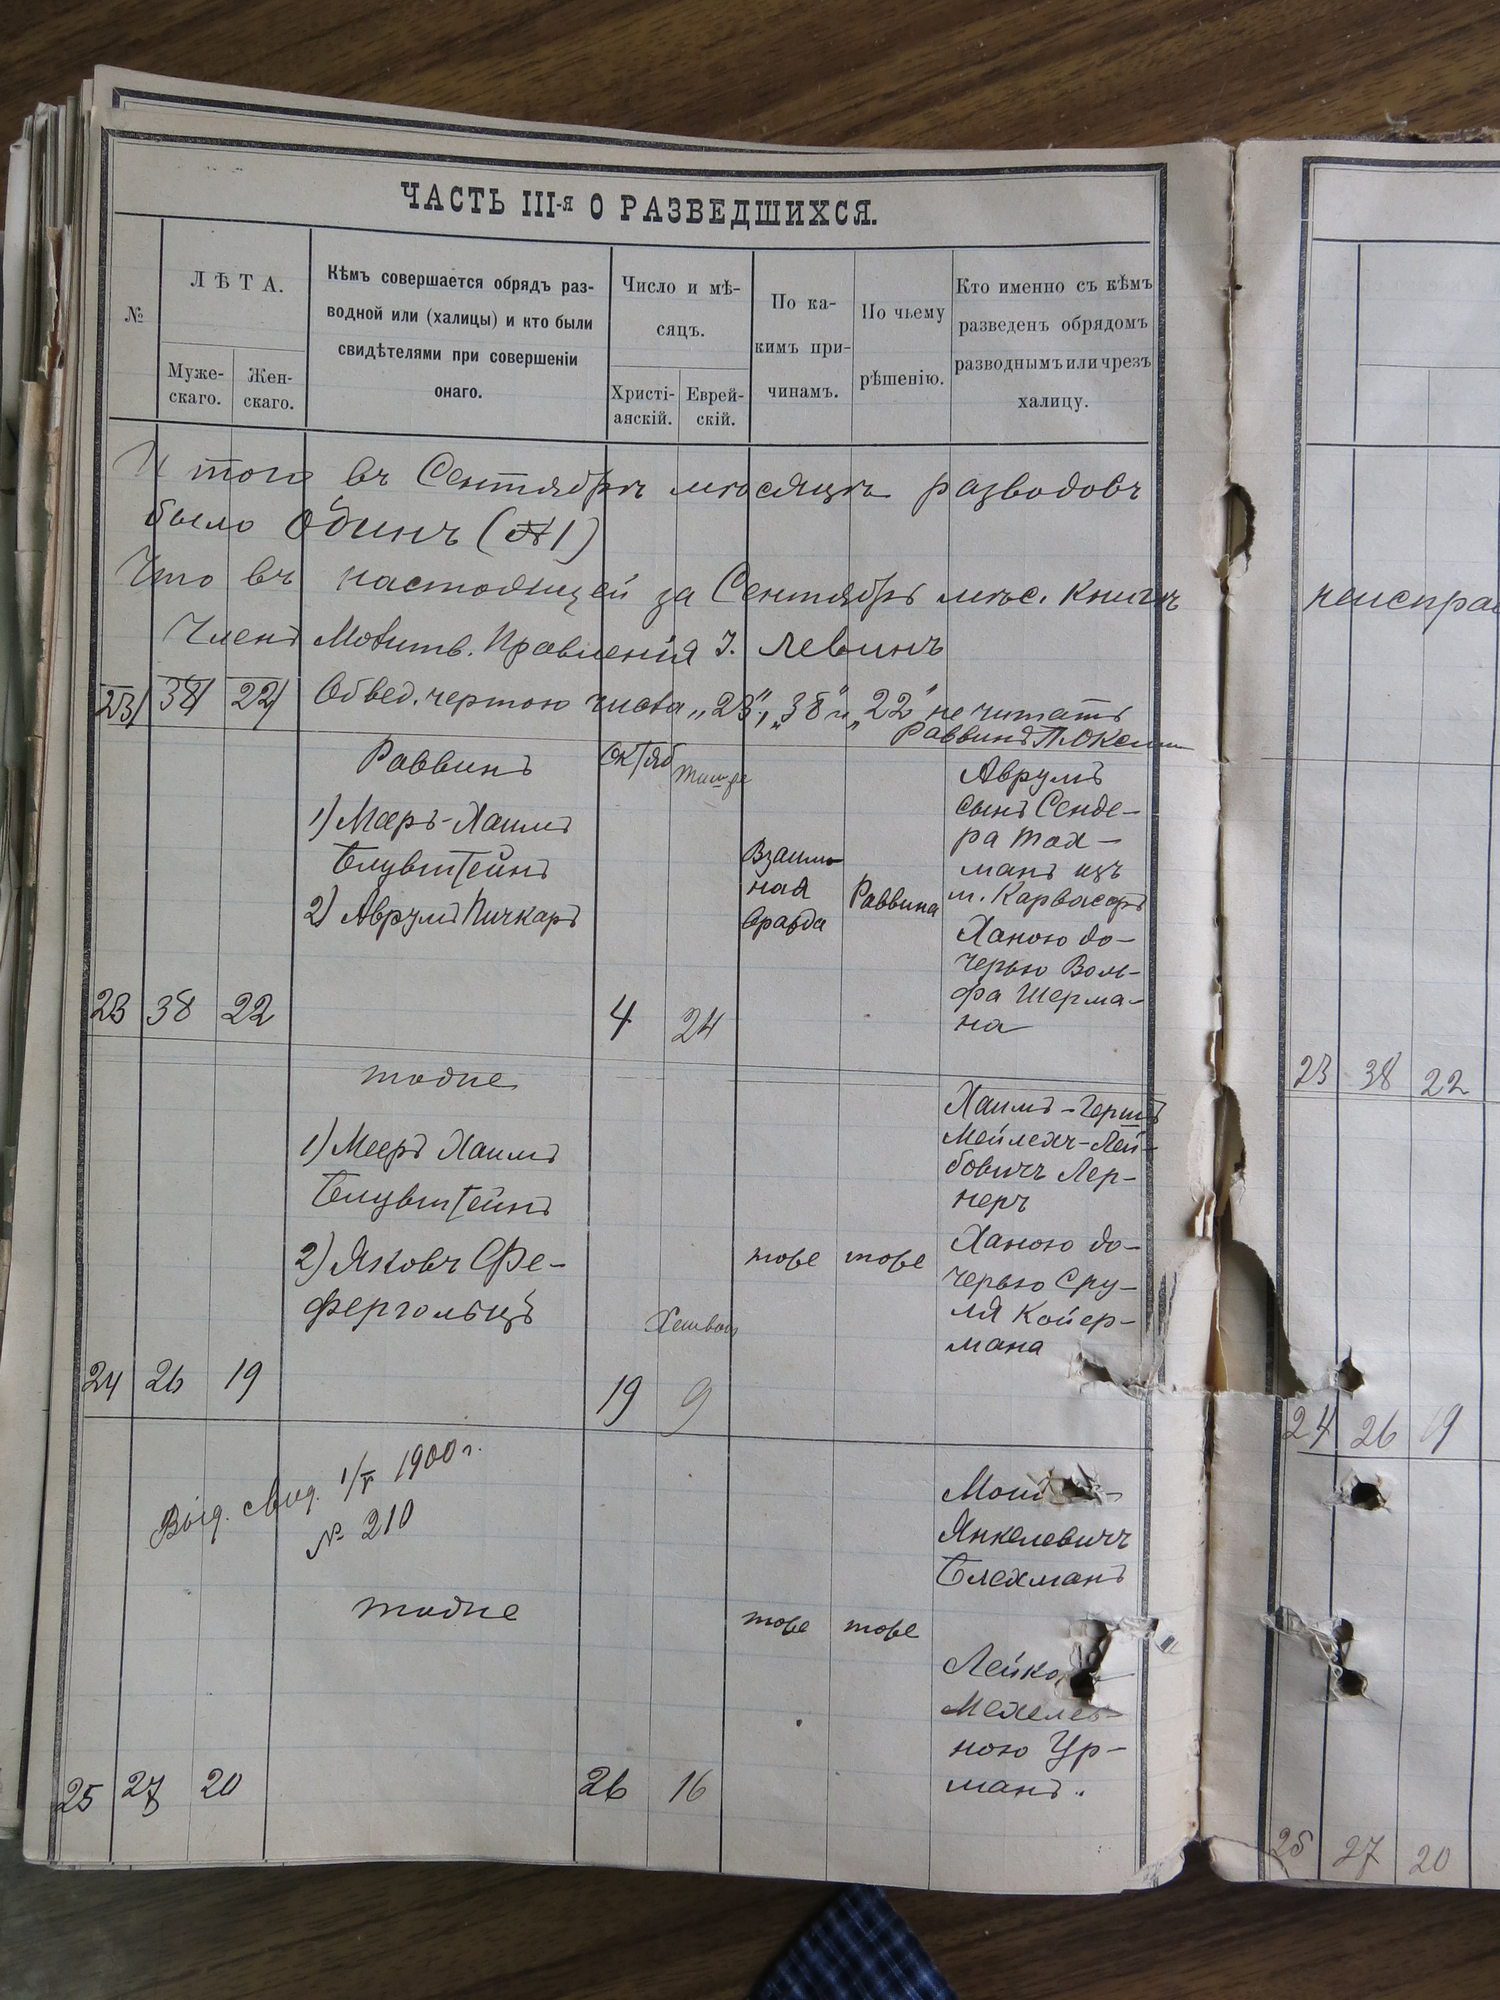 ЧАСТЬ III-я О РАЗВЕДШИХСЯ.
№
ЛѢТА.
Муже-
скаго.
Жен-
скаго.
Кѣмъ совершается обрядъ раз-
водной или (халицы) и кто были
свидѣтелями при совершеніи
онаго.
Число и мѣ-
сяцъ.
Христі-
аяскій.
Еврей-
скій.
По ка-
кимъ при-
чинамъ.
По чьему
рѣшенію.
Кто именно съ кѣмъ
разведенъ обрядомъ
разводнымъ или чрезъ
халицу.
Итого въ Сентябрѣ мѣсяцѣ разводовъ
было Одинъ (№ 1)
Что въ настоящей за Сентябрь мѣс. книгѣ
Членъ Молитв. Правленія І. Левинъ
23 38 22 Обвед. чертою числа „23", „38" и „22" не читать
Раввинъ
Раввинъ
Октяб
Тишре
1) Мееръ-Хаимъ
Блувштейнъ
2) Аврумъ Пичкарь
Взаим-
ная
вражда
Раввина
Аврумъ
сынъ Сенде-
ра Тах-
манъ изъ
м. Карвасаръ
Ханою до-
черью Воль-
фа Шерма-
на
23 38 22 4 24
тодне
1) Мееръ Хаимъ
Блувштейнъ
2) Яковъ
фергольцъ
Хешван
тоже тоже
Хаимъ-Гершъ
Мейлехъ-Лей-
бовичъ Лер-
неръ
Ханою до-
черью Сру-
ля Койер-
мана
24 26 19 19 9
Выд. свид. 1/V 1900 г.
№ 210
тодне
тоже тоже
Янкелевичъ
Блехманъ
Мехелев-
ною Ур-
манъ.
25 27 20 26 16
неиспра
23 38 22
24 26 19
25 27 20